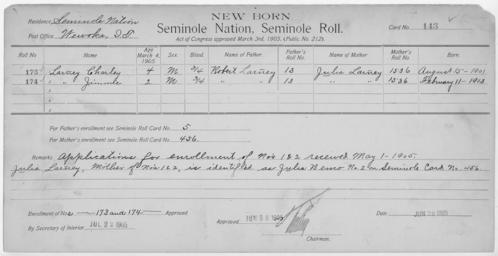 NEW BORN
Residence, Seminole Nation
Seminole Nation, Seminole Roll.
Card No. 143
Post Office, Wewoka, I.T.
Act of Congress approved March 3rd, 1905, (Public. No. 212).
Roll No Name Age March 4, 1905 Sex Blood Name of Father Father's Roll No. Name of Mother Mother's Roll No. Born:
173 Larney Charley 4 M 3/4 Robert Larney 13 Julia Larney 1336 August 15-1901
174 " " Jimmie 2 M 3/4 " " 13 " " 1336 February 11-1903
For Father's enrollment see Seminole Roll Card No. 5
For Mother's enrollment see Seminole Roll Card No. 456
Remarks Applications for enrollment of Nos 1 & 2 received May 1-1905.
Julia Larney, Mother of Nos 1 & 2, is identified as Julia No. 2 on Seminole Card No. 456
Enrollment of Nos 173 and 174 Approved
By Secretary of Interior JUL 22 1905
Approved
Chairman.
Date